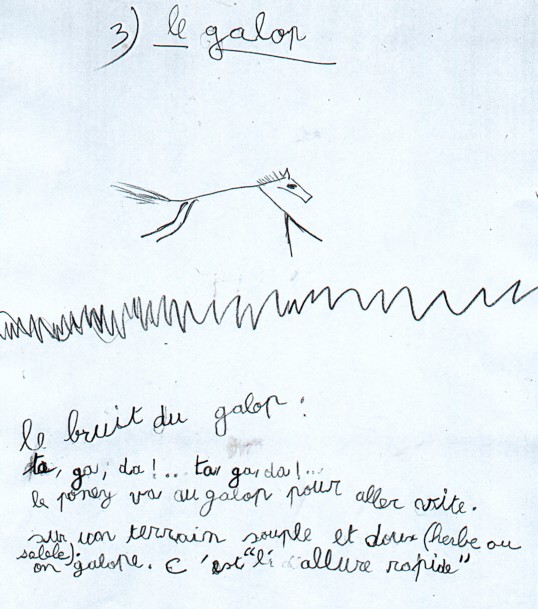 3) le galop
le bruit du galop :
ta, ga, da !.. ta, ga, da !..
le poney va au galop pour aller vite.
sur un terrain souple et doux (herbe ou
sable).
on galope. C'est "l'allure rapide"